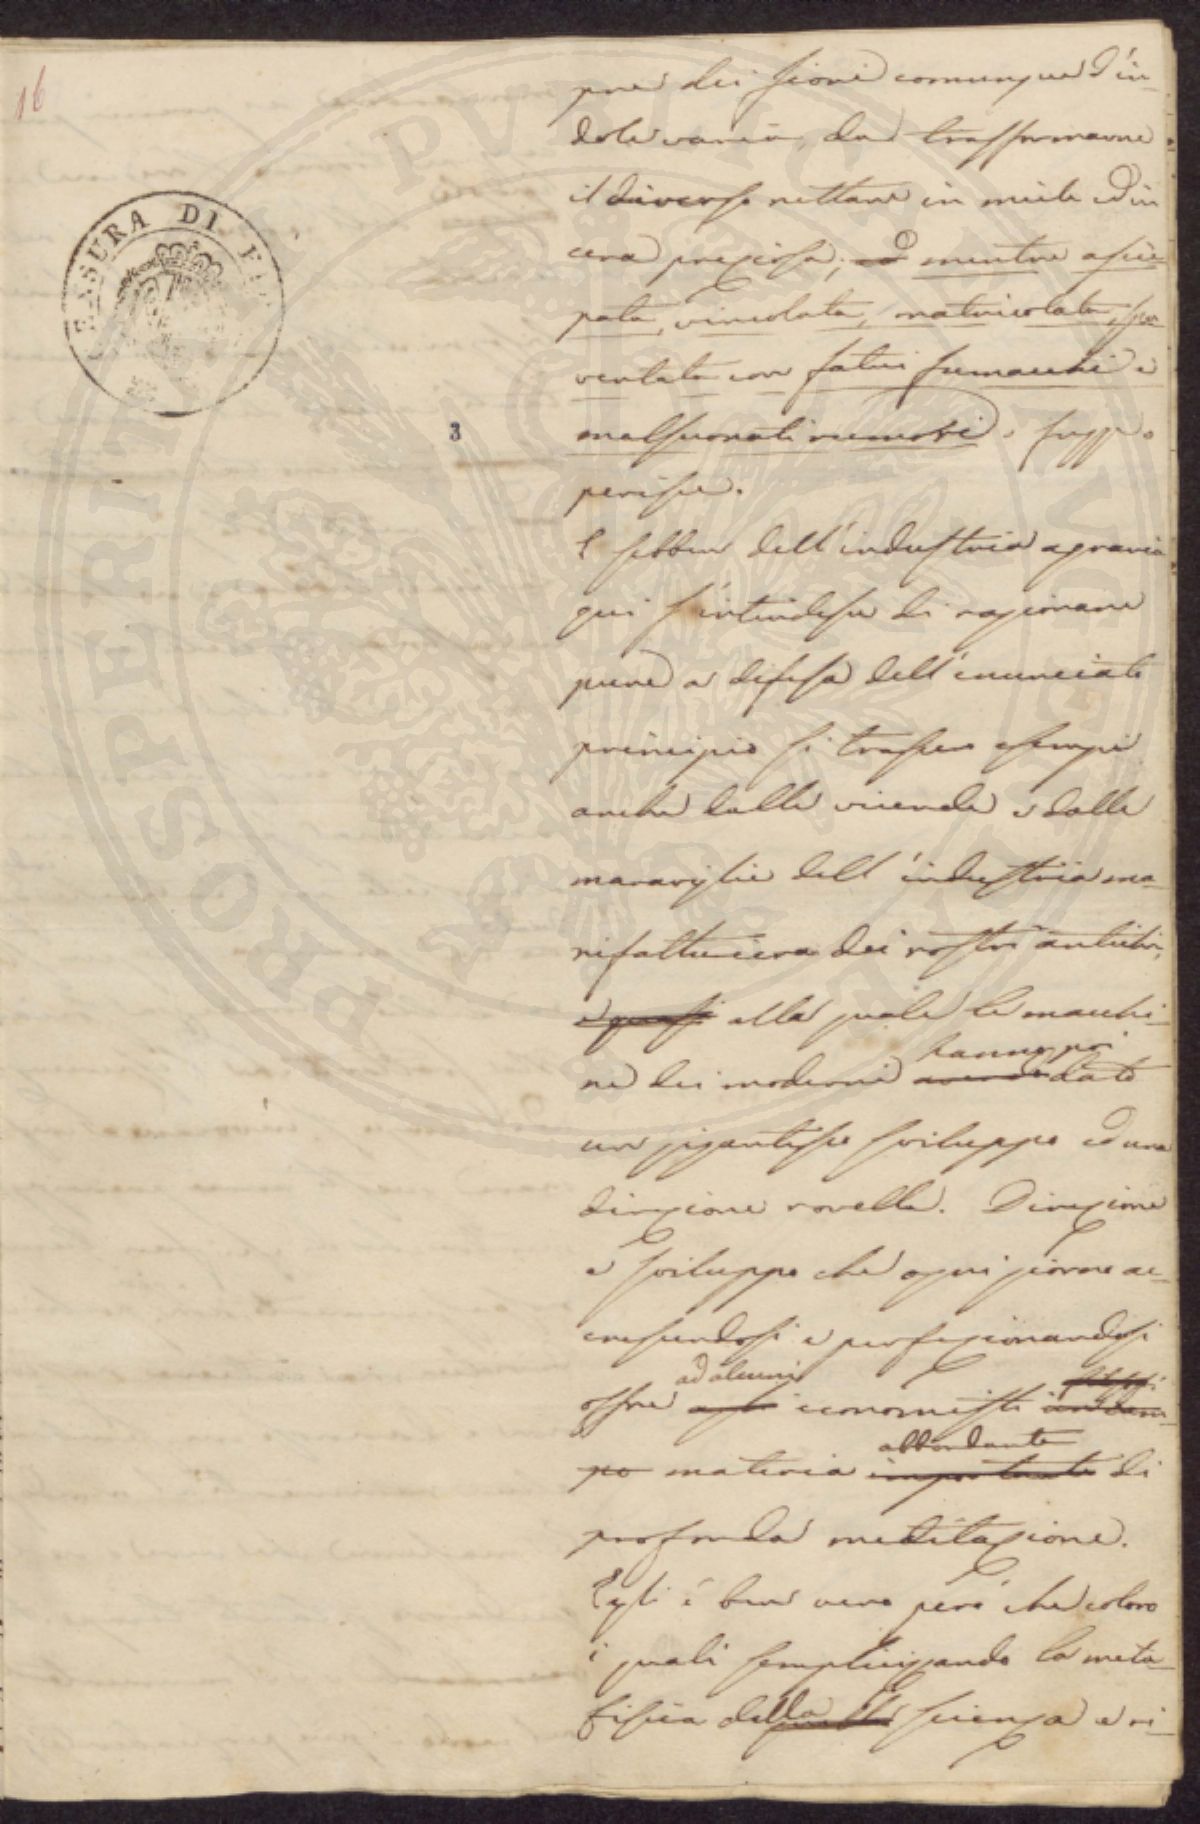 16
CENSURA DI F
3
pre dei fiori comunque d'in-
dole varia, da trasformarne
il diverso nettare in miele ed in
cera preziosa; ed mentre assie-
pata, vincolata, matricolata,
ventata con fatui fumacchi e
malsuonati rumori, o fugge o
perisce.
E sebben dell'industria agraria
qui s'intendesse di ragionare
pure a difesa dell'enunciato
principio si trassero esempi
anche dalle vicende e dalle
maraviglie dell'industria ma-
nifatturiera dei nostri antichi,
e quasi alla quale le macchi-
hanno poi
ne dei moderni avendo dato
un gigantesco sviluppo ed una
direzione novella. Direzione
e sviluppo che ogni giorno ac-
crescendosi e perfezionandosi
ad alcuni
offre agli economisti
abbondante
po materia importante di
profonda meditazione.
Egli è ben vero però che coloro
i quali semplicizzando la meta-
fisica della scienza e ri-
PROSPERITATI PUBLICAE AUGENDAE